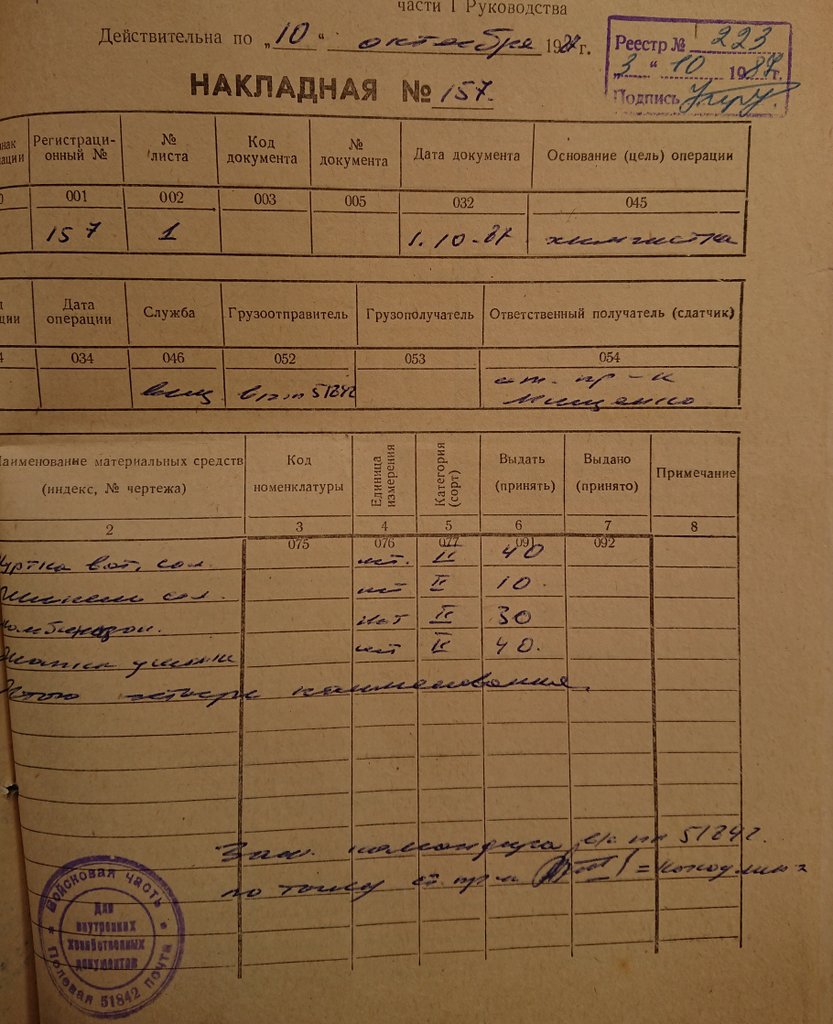 части I Руководства
Действительна по „10“ октября 1987 г.
НАКЛАДНАЯ № 157.
Реестр № 223
„3“ 10 1987 г.
Подпись
Регистраци-онный №
№ листа
Код документа
№ документа
Дата документа
Основание (цель) операции
001 002 003 005 032 045
157 1 1.10-87 химчистка
Дата операции
Служба
Грузоотправитель
Грузополучатель
Ответственный получатель (сдатчик)
034 046 052 053 054
вещ в/ч пп 51842 ст. пр-к
Мищенко
Наименование материальных средств (индекс, № чертежа)
Код номенклатуры
Единица измерения
Категория (сорт)
Выдать (принять)
Выдано (принято)
Примечание
2 3 4 5 6 7 8
075 076 077 091 092
Куртка ват. сол. шт. II 40
Шинель сол. шт II 10.
Комбинезон. шт II 30
Шапка ушанка шт II 40.
Итого четыре наименования.
Зам. командира в/ч пп 51842.
по тылу ст. пр-к
Войсковая часть
Полевая почта 51842
Для
внутренних
хозяйственных
документов